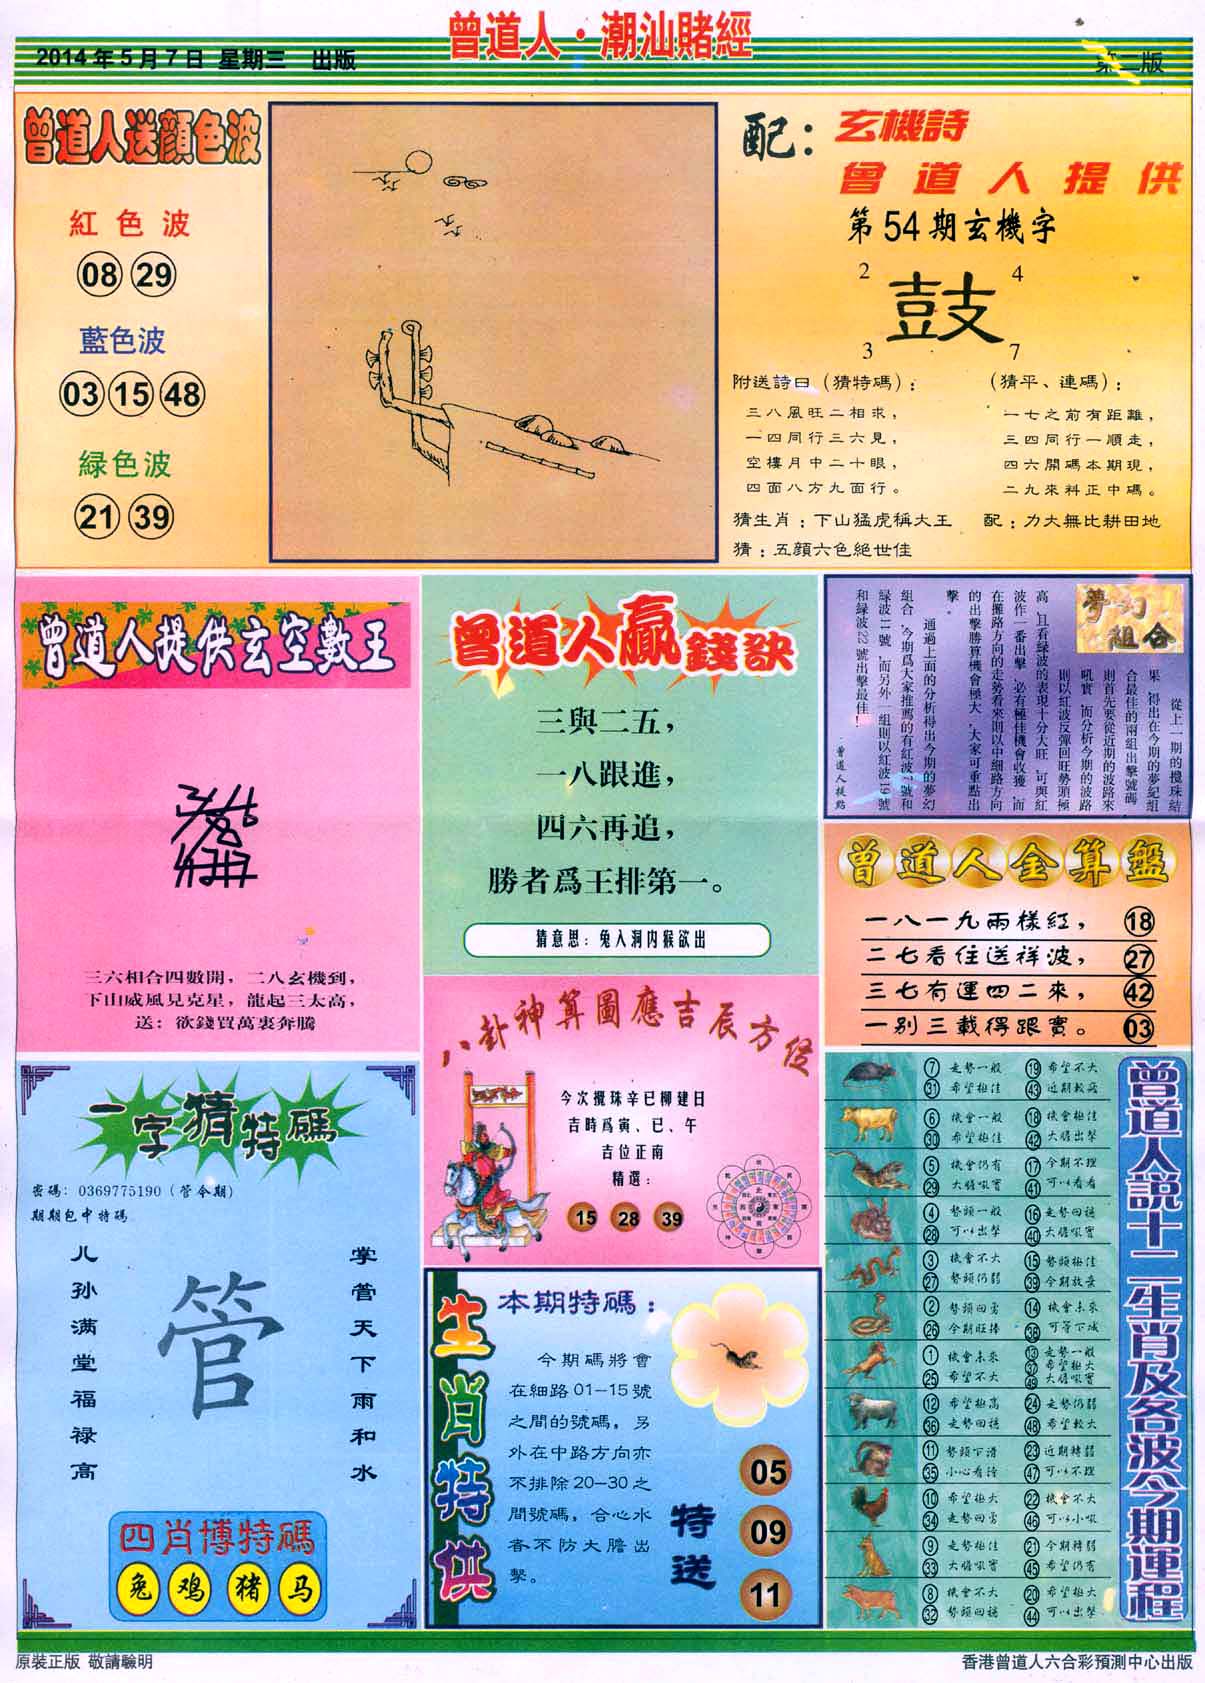 曾道人·潮汕賭經
2014年5月7日 星期三 出版
第二版
曾道人送顔色波
紅色波
08 29
藍色波
03 15 48
緑色波
21 39
配：玄機詩
曾道人提供
第54期玄機字
2 4
鼓
3 7
附送詩曰（猜特碼）：
三八風旺二相求，
一四同行三六見，
空樓月中二十眼，
四面八方九面行。
（猜平、連碼）：
一七之前有距離，
三四同行一順走，
四六開碼本期現，
二九來料正中碼。
猜生肖：下山猛虎稱大王 配：力大無比耕田地
猜：五顔六色絕世佳
曾道人提供玄空數王
三六相合四數開，二八玄機到，
下山威風見克星，龍起三太高，
送：欲錢買萬裏奔騰
曾道人贏錢訣
三與二五，
一八跟進，
四六再追，
勝者爲王排第一。
猜意思：兔入洞内猴欲出
夢幻
組合
從上一期的攪珠結
果，得出在今期的夢紀組
合最佳的兩組出擊號碼
則首先要從近期的波路來
吼實，而分析今期的波路
則以紅波反彈回旺勢頭極
高，且看緑波的表現十分大旺，可與紅
波作一番出擊，必有極佳機會收獲，而
在攤路方向的走勢看來則以中細路方向
的出擊勝算機會極大，大家可重點出
擊。
通過上面的分析得出今期的夢幻
組合，今期爲大家推薦的有紅波號和
緑波11號，而另外一組則以紅波19號
和緑波22號出擊最佳！
曾道人提點
曾道人金算盤
一八一九兩樣紅， 18
二七看住送祥波， 27
三七有運四二來， 42
一别三載得跟實。 03
八卦神算圖應吉辰方位
今次攪珠辛已柳建日
吉時爲寅、已、午
吉位正南
精選：
15 28 39
一字猜特碼
密碼：0369775190（管令期）
期期包中特碼
儿孙满堂福禄高
管
掌管天下雨和水
四肖博特碼
兔 鸡 猪 马
生肖特供
本期特碼：
今期碼將會
在細路01-15號
之間的號碼，另
外在中路方向亦
不排除20-30之
間號碼，合心水
者不防大膽出
擊。
特送
05
09
11
曾道人説十二生肖及各波今期運程
7 走勢一般 19 希望不大
31 希望極佳 43 近期較疲
6 機會一般 18 機會極佳
30 希望極佳 42 大膽出擊
5 機會仍有 17 今期不理
29 大膽吼實 41 可以看看
4 勢頭一般 16 走勢回穩
28 可以出擊 40 大膽吼實
3 機會不大 15 勢頭極佳
27 勢頭仍弱 39 今期放棄
2 勢頭回勇 14 機會未來
26 今期旺捧 38 可等下域
1 機會未來 13 走勢一般
37 希望極大
25 希望不大 49 大膽吼實
12 希望極高 24 走勢仍弱
36 走勢回穩 48 希望較大
11 勢頭下滑 23 近期轉弱
35 小心看待 47 可以不理
10 希望極大 22 機會不大
34 走勢回勇 46 可以小吼
9 走勢極佳 21 今期轉弱
33 大膽吼實 45 希望仍有
8 機會不大 20 希望極大
32 勢頭回穩 44 可以出擊
原裝正版 敬請驗明
香港曾道人六合彩預測中心出版